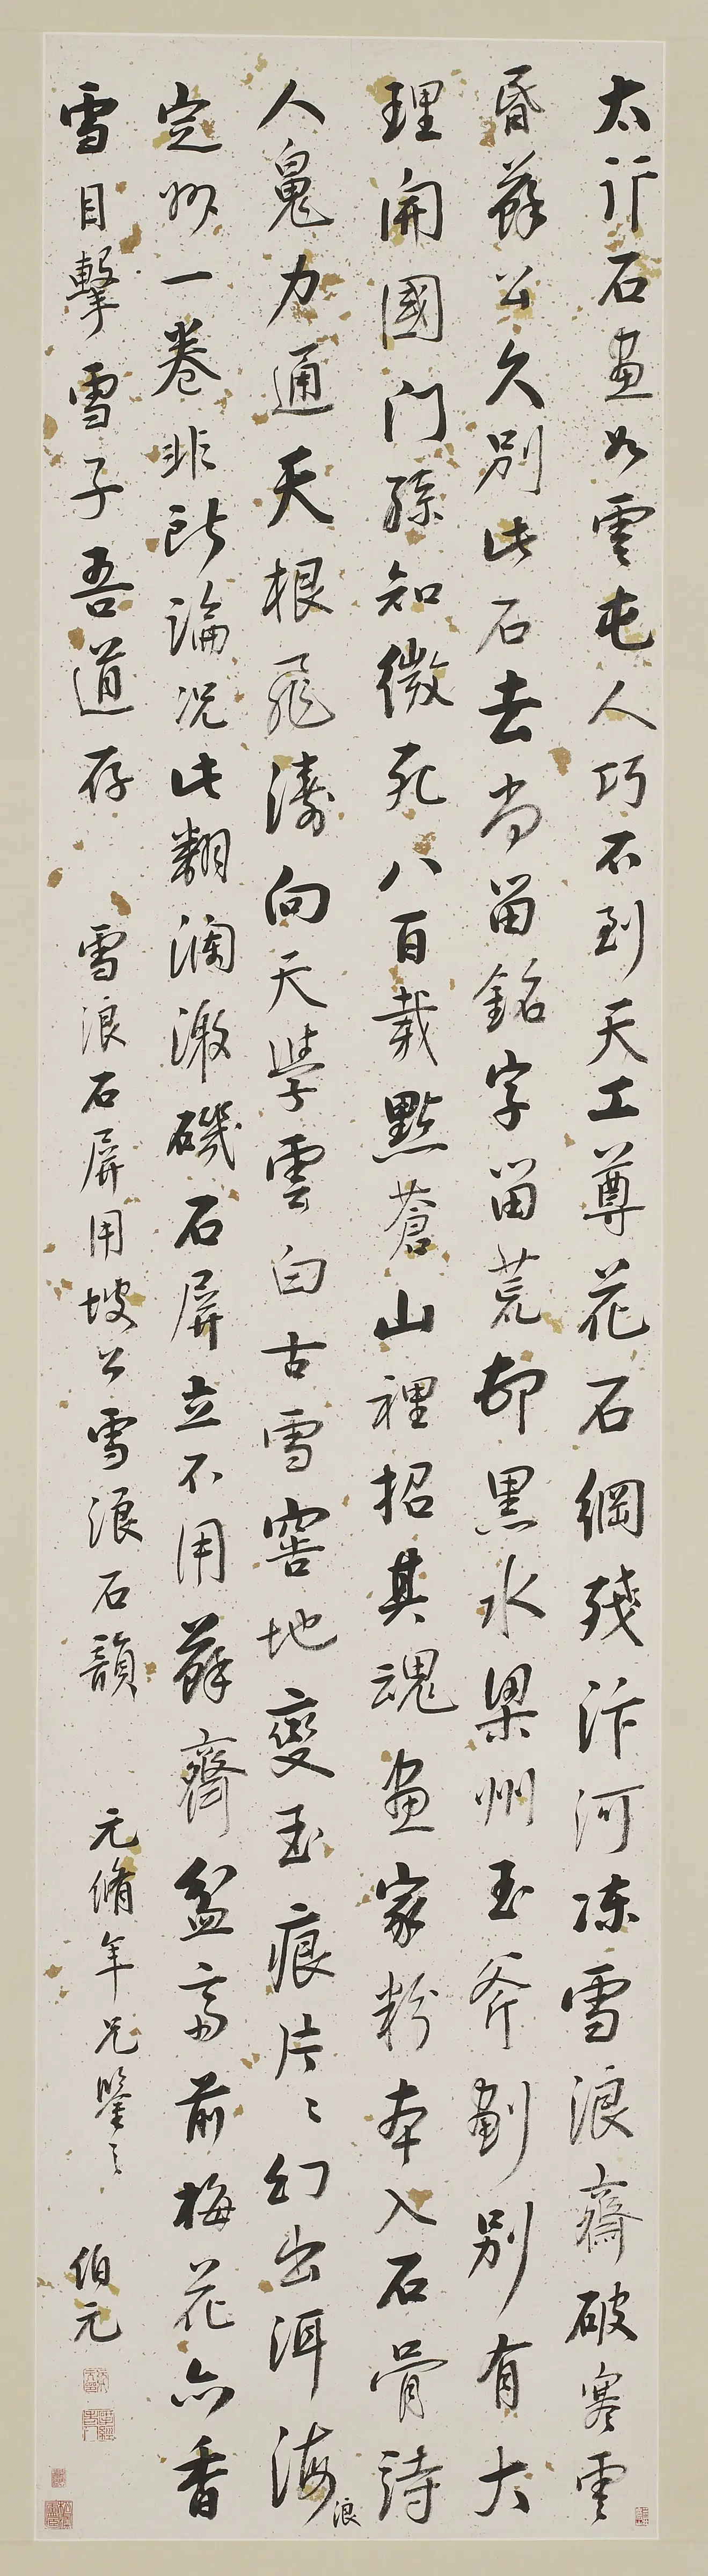 太行石畫如雲屯人巧不到天工尊花石綱殘汴河凍雪浪齋破寒雲
昏蘇公久別此石去尚留銘字留荒邨黑水梁州玉斧劃別有大
理開國門孫知微死八百載點蒼山裡招其魂畫家粉本入石骨詩
人鬼力通天根飛濤向天學雲白古雪窖地變玉痕片片幻出洱海浪
定州一卷非所論況此翻瀾激磯石屏立不用蘇齋盆齋前梅花亦香
雪目擊雪子吾道存 雪浪石屏用坡公雪浪石韻 元脩年兄鑒之 伯元